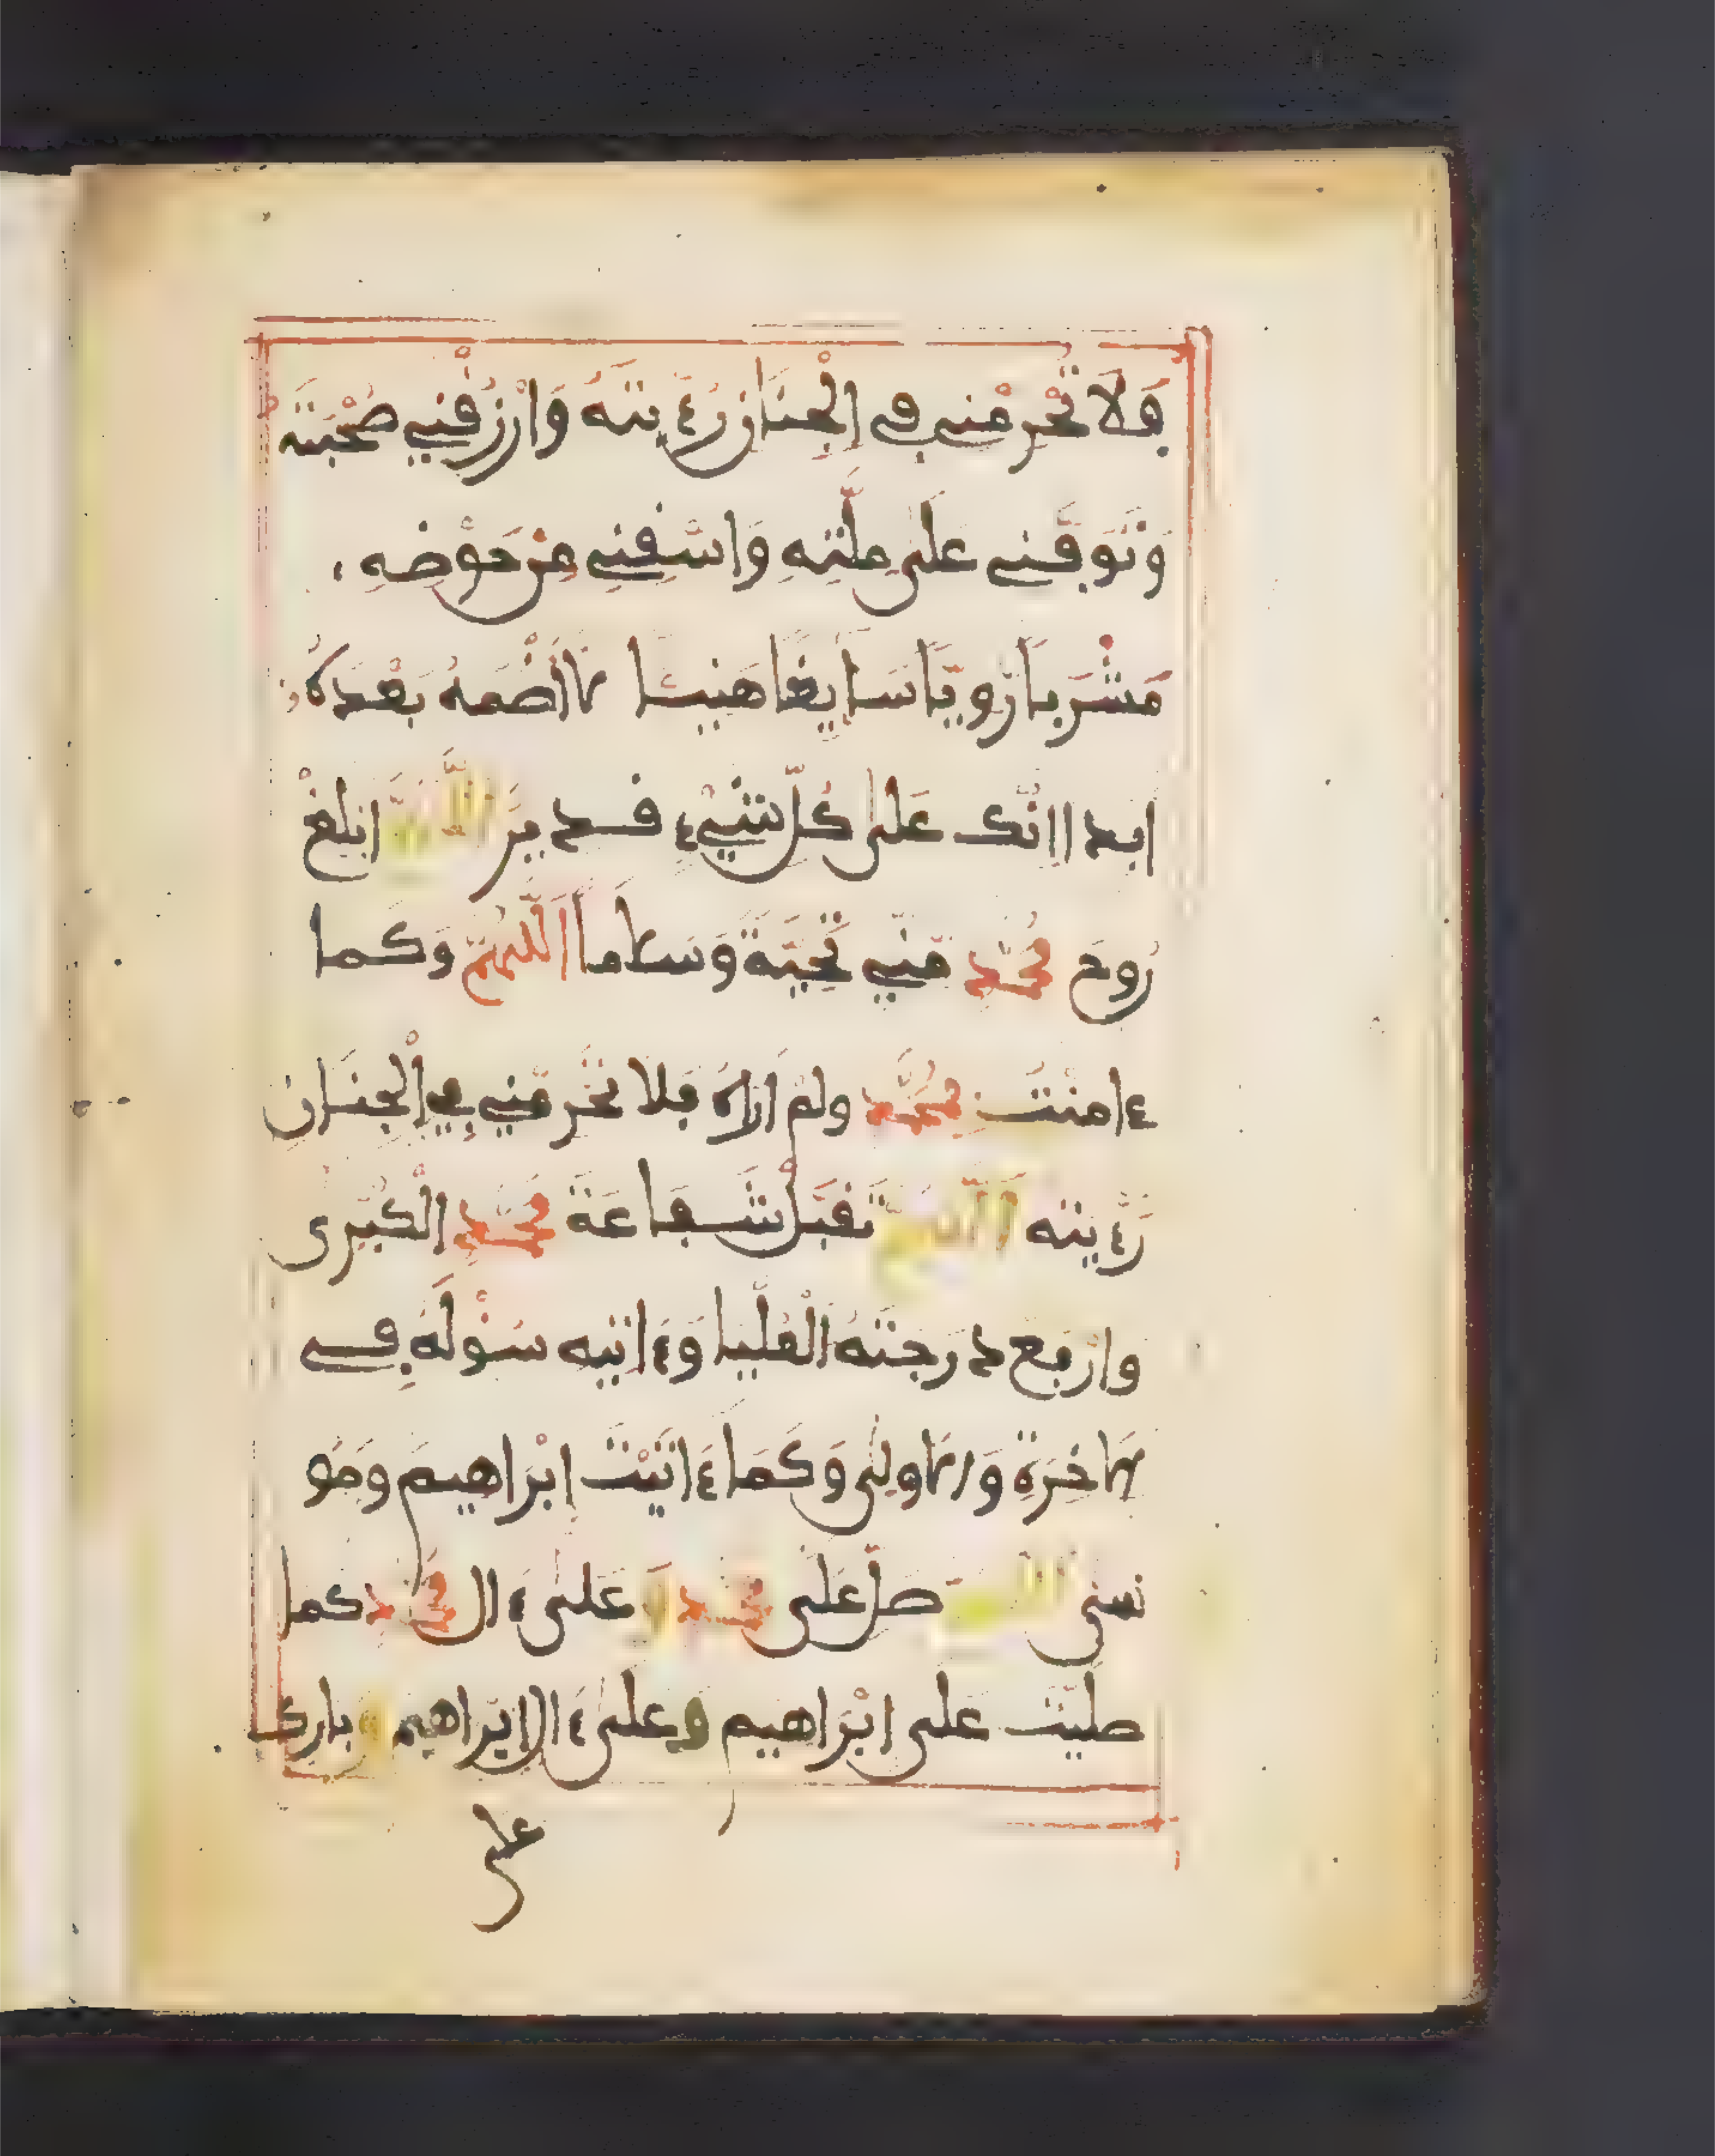 فَلَا تَحْرِمْنِي فِي الْجِنَانِ رُءْيَتَهُ وَارْزُقْنِي صُحْبَتَهُ
وَتَوَفَّنِي عَلَى مِلَّتِهِ وَاسْقِنِي مِنْ حَوْضِهِ
مَشْرَبًا رَّوِيًّا سَايِغًا هَنِيئًا لَا أَضْمَهُ بَعْدَهُ
ابدا انّك عَلَى كُلِّ شَيْءٍ قدير اللَّهُمَّ ابْلِغْ
رُوحَ مُحَمَّدٍ مِّنِّي تَحِيَّةً وَسَلَامًا اللَّهُمَّ وَكَما
ءامنْتُ بِمُحَمَّدٍ ولم اره فَلا تَحْرِمْنِي فِي الْجِنَانِ
رُءْيته اللَّهُمَّ تَقَبَّلْ شَفَاعَةَ مُحَمَّدٍ الْكُبْرى
وارْفع درجتهُ الْعُلْيا وَءَاتِيهِ سُؤْلَهُ فِي
الَاخِرَةِ وَالُاولى وَكَمَا ءَاتَيْتَ إِبْرَاهِيمَ وَمُو
سى اللهم صَلِّ عَلَى مُحَمَّدٍ وَعَلَى ءَال مُحَمَّدٍ كما
صليّت عَلَى ابْرَاهيم وَعَلَى ءَال ابْرَاهيم وبارك
على